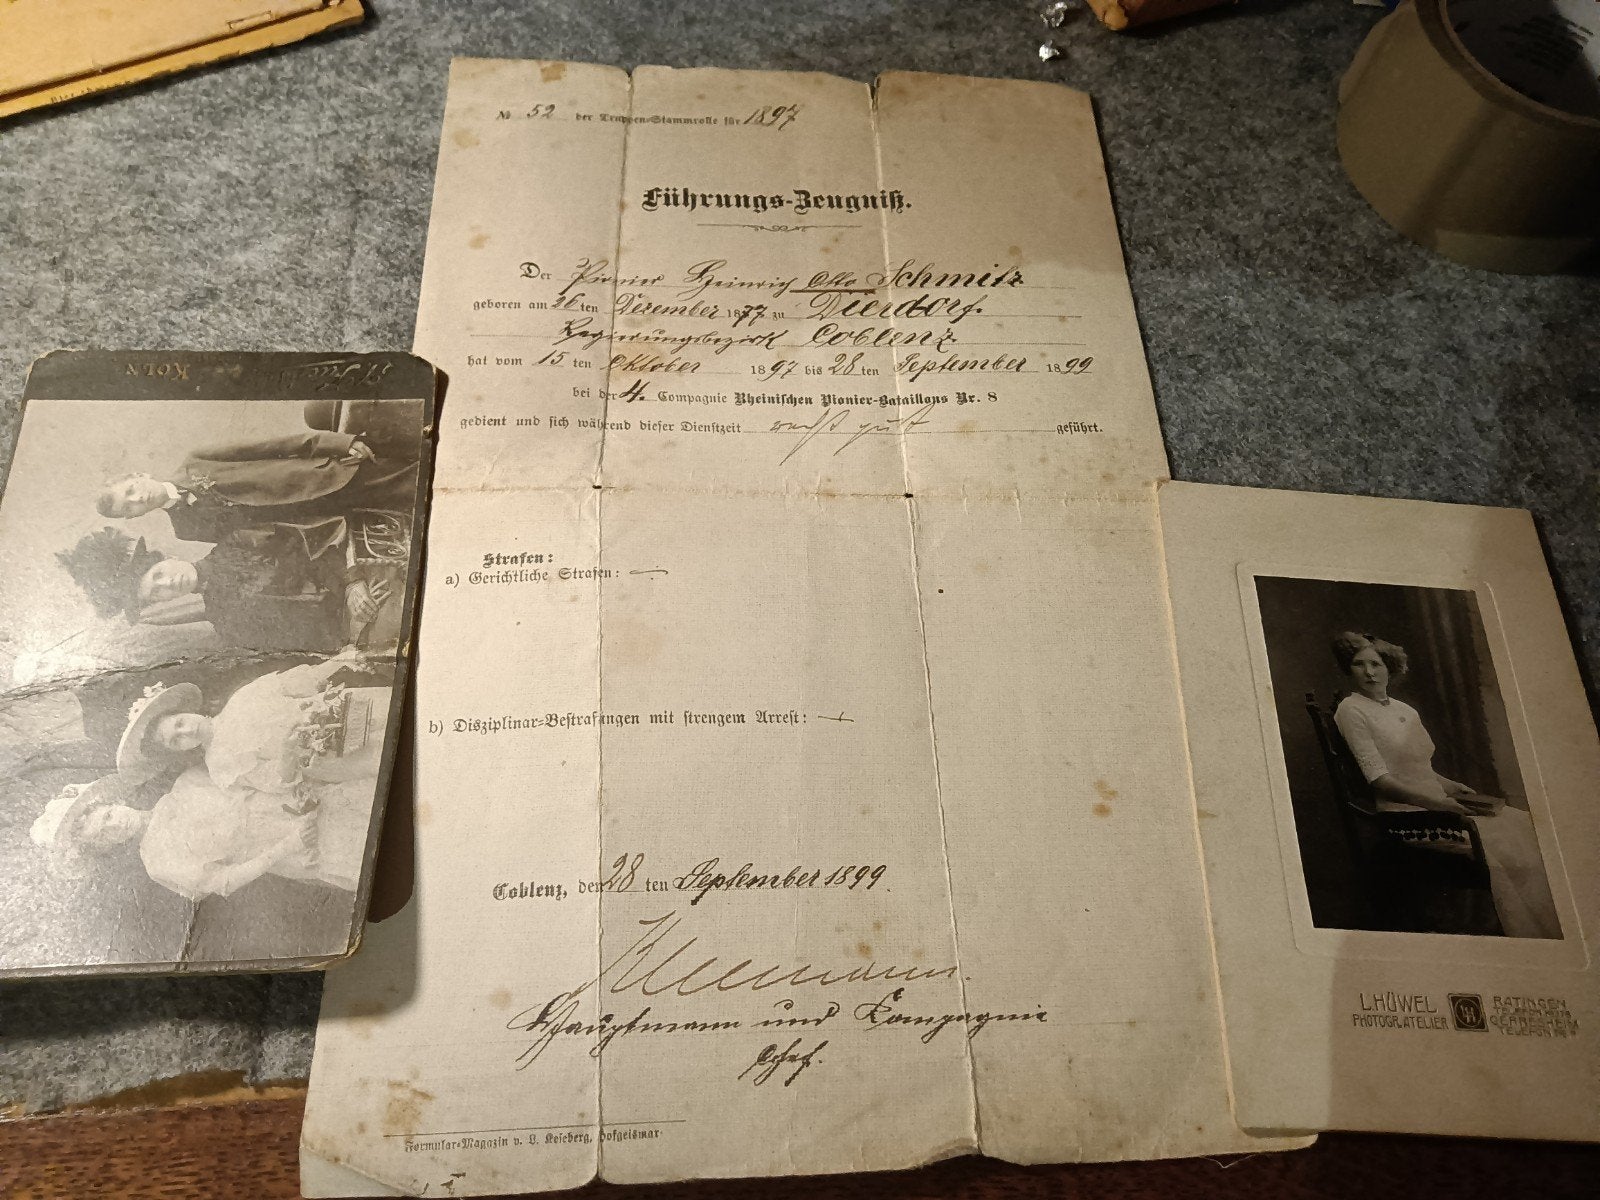 № 52 der Truppen-Stammrolle für 1897
Führungs-Zeugniß.
Der Pionier Heinrich Otto Schmitz
geboren am 26 ten Dezember 1877 zu Dierdorf.
Regierungsbezirk Coblenz.
hat vom 15 ten Oktober 1897 bis 28 ten September 1899
bei der 4. Compagnie Rheinischen Pionier-Bataillons Nr. 8
gedient und sich während dieser Dienstzeit recht gut geführt.
Strafen:
a) Gerichtliche Strafen: —
b) Disziplinar-Bestrafungen mit strengem Arrest: —
Coblenz, den 28 ten September 1899.
Kleemann.
Hauptmann und Kompagnie
Chef.
Formular-Magazin v. L. Keseberg, Hofgeismar
KÖLN
L. HÜWEL
PHOTOGR. ATELIER
RATINGEN
TELEFON
GERRESHEIM
TELEFON